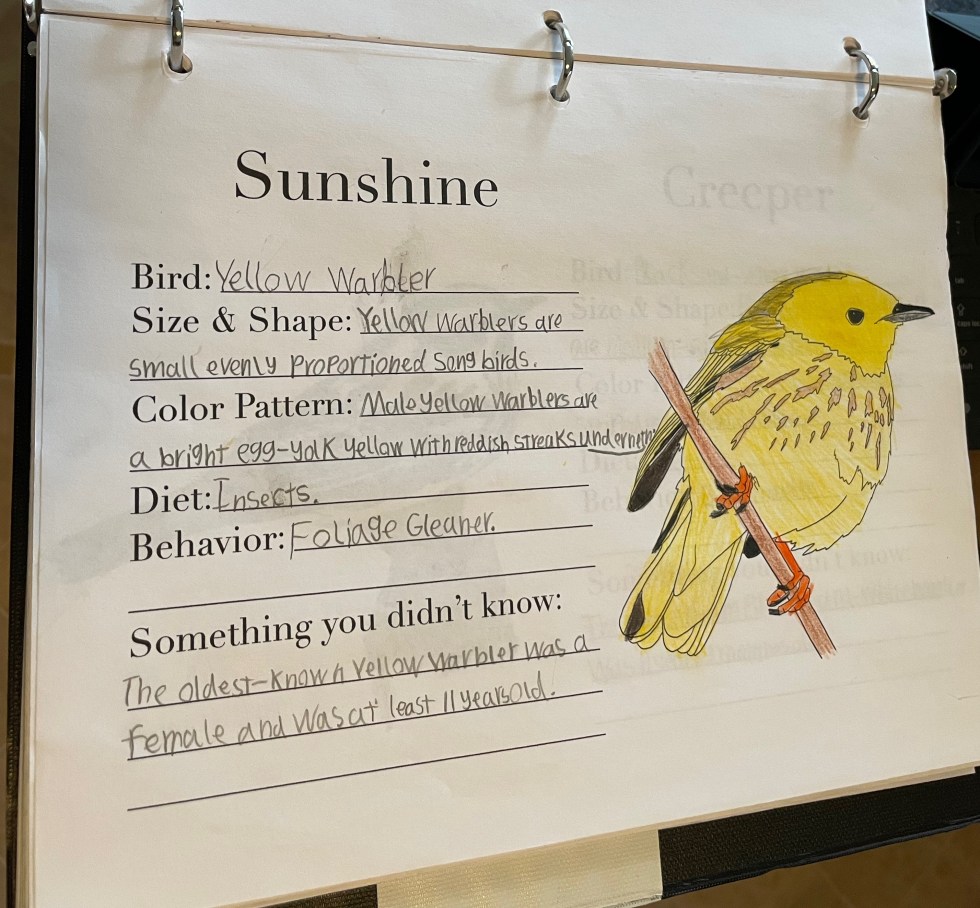 Sunshine
Creeper
Bird: Yellow Warbler
Size & Shape: Yellow Warblers are
small evenly proportioned song birds.
Color Pattern: Male Yellow Warblers are
a bright egg-yolk yellow with reddish streaks underneath
Diet: Insects.
Behavior: Foliage Gleaner.
Something you didn't know:
The oldest-known Yellow Warbler was a
female and was at least 11 years old.